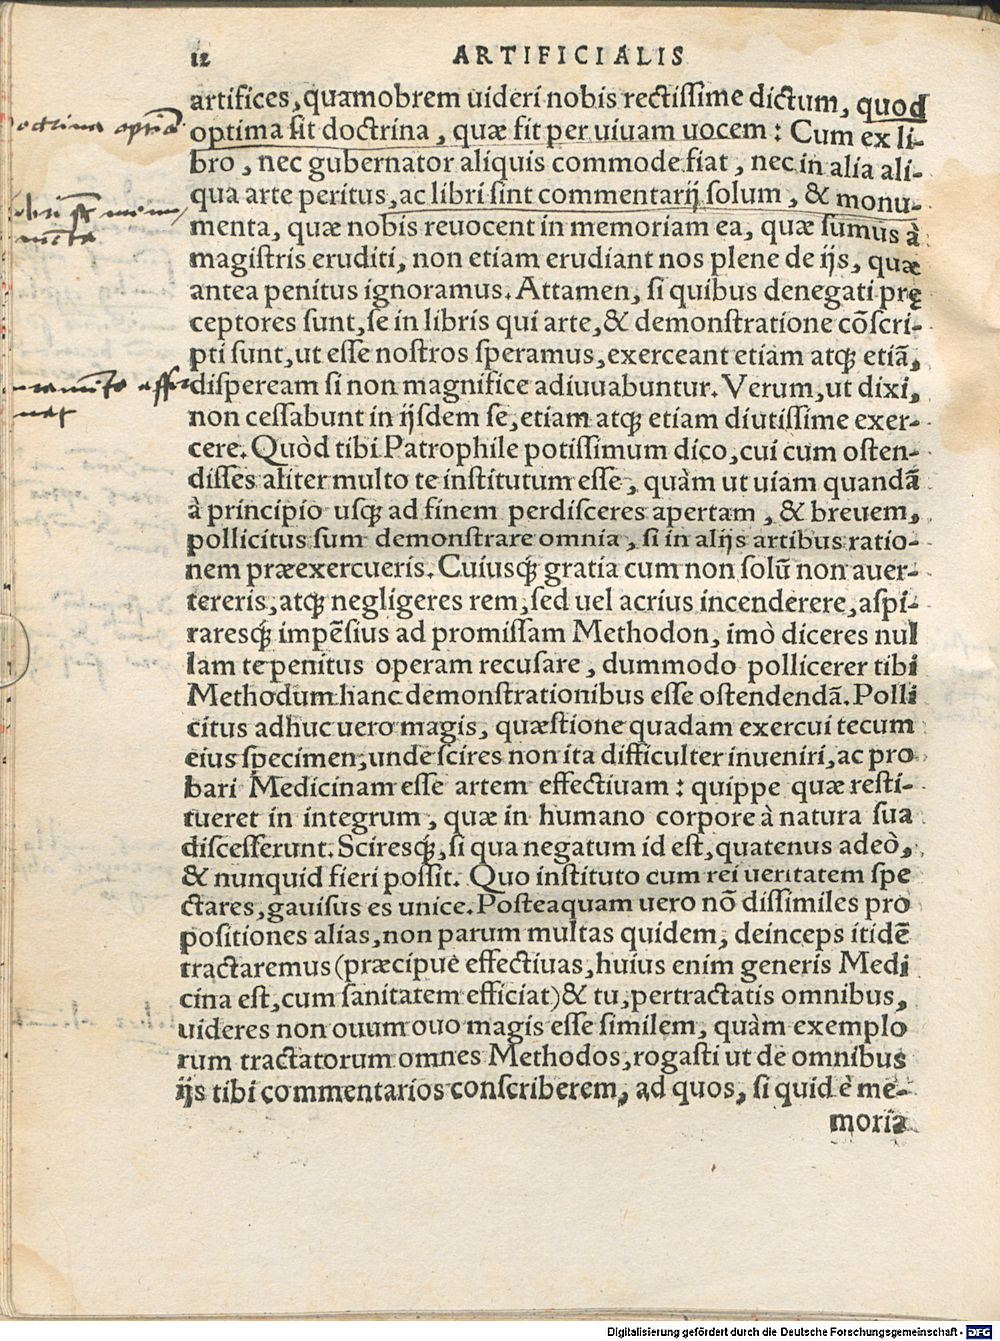 12 ARTIFICIALIS
artifices, quamobrem uideri nobis rectiſſime dictum, quod
optima ſit doctrina, quæ fit per uiuam uocem: Cum ex li-
bro, nec gubernator aliquis commode fiat, nec in alia ali-
qua arte peritus, ac libri ſint commentarij ſolum, & monu-
menta, quæ nobis reuocent in memoriam ea, quæ ſumus à
magiſtris eruditi, non etiam erudiant nos plene de ijs, quæ
antea penitus ignoramus. Attamen, ſi quibus denegati prę
ceptores ſunt, ſe in libris qui arte, & demonſtratione cõſcri-
pti ſunt, ut eſſe noſtros ſperamus, exerceant etiam atq; etiã,
diſpeream ſi non magnifice adiuuabuntur. Verum, ut dixi,
non ceſſabunt in ijſdem ſe, etiam atq; etiam diutiſſime exer-
cere. Quòd tibi Patrophile potiſſimum dico, cui cum oſten-
diſſes aliter multo te inſtitutum eſſe, quàm ut uiam quandã
à principio uſq; ad finem perdiſceres apertam, & breuem,
pollicitus ſum demonſtrare omnia, ſi in alijs artibus ratio-
nem præexercueris. Cuiusq; gratia cum non ſolũ non auer-
tereris, atq; negligeres rem, ſed uel acrius incenderere, aſpi-
raresq; impẽſius ad promiſſam Methodon, imò diceres nul
lam te penitus operam recuſare, dummodo pollicerer tibi
Methodum hanc demonſtrationibus eſſe oſtendendã. Polli
citus adhuc uero magis, quæſtione quadam exercui tecum
eius ſpecimen, unde ſcires non ita difficulter inueniri, ac pro
bari Medicinam eſſe artem effectiuam: quippe quæ reſti-
tueret in integrum, quæ in humano corpore à natura ſua
diſceſſerunt. Sciresq;, ſi qua negatum id eſt, quatenus adeò,
& nunquid fieri poſſit. Quo inſtituto cum rei ueritatem ſpe
ctares, gauiſus es unice. Poſteaquam uero nõ diſſimiles pro
poſitiones alias, non parum multas quidem, deinceps itidẽ
tractaremus (præcipuè effectiuas, huius enim generis Medi
cina eſt, cum ſanitatem efficiat) & tu, pertractatis omnibus,
uideres non ouum ouo magis eſſe ſimilem, quàm exemplo
rum tractatorum omnes Methodos, rogaſti ut de omnibus
ijs tibi commentarios conſcriberem, ad quos, ſi quid è me-
moria
Digitalisierung gefördert durch die Deutsche Forschungsgemeinschaft - DFG